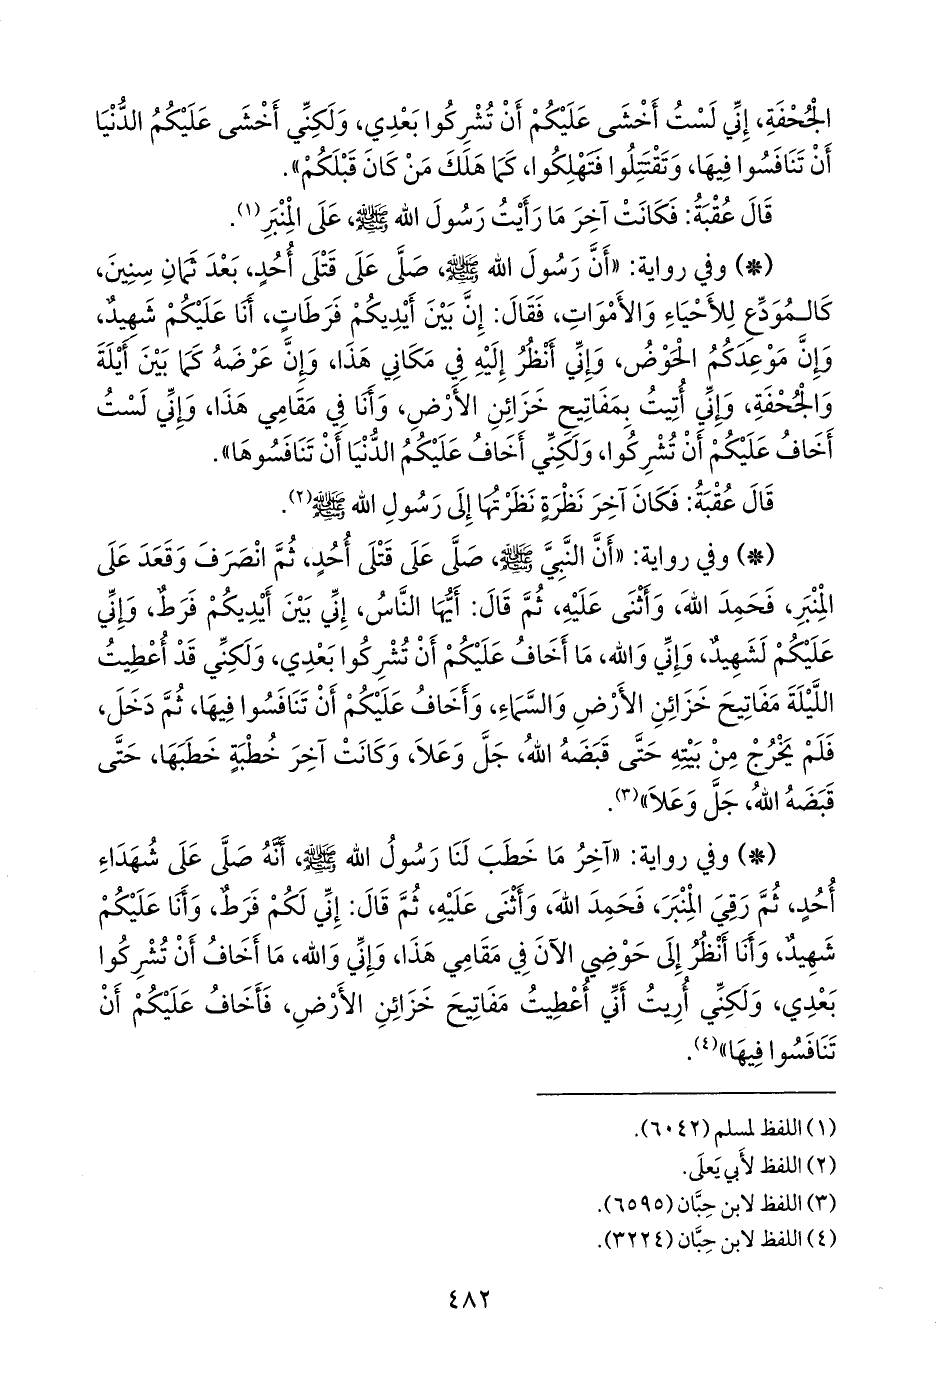 الْجُحْفَةِ، إِنِّي لَسْتُ أَخْشَى عَلَيْكُمْ أَنْ تُشْرِكُوا بَعْدِي، وَلَكِنِّي أَخْشَى عَلَيْكُمُ الدُّنْيَا
أَنْ تَنَافَسُوا فِيهَا، وَتَقْتَتِلُوا فَتَهْلِكُوا، كَمَا هَلَكَ مَنْ كَانَ قَبْلَكُمْ».
قَالَ عُقْبَةُ: فَكَانَتْ آخِرَ مَا رَأَيْتُ رَسُولَ الله ﷺ، عَلَى الْمِنْبَرِ(١).
(*) وفي رواية: «أَنَّ رَسُولَ الله ﷺ، صَلَّى عَلَى قَتْلَى أُحُدٍ، بَعْدَ ثَمَانِ سِنِينَ،
كَالمُوَدِّعِ لِلأَحْيَاءِ وَالأَمْوَاتِ، فَقَالَ: إِنَّ بَيْنَ أَيْدِيكُمْ فَرَطَاتٍ، أَنَا عَلَيْكُمْ شَهِيدٌ،
وَإِنَّ مَوْعِدَكُمُ الْحَوْضُ، وَإِنِّي أَنْظُرُ إِلَيْهِ فِي مَكَانِي هَذَا، وَإِنَّ عَرْضَهُ كَمَا بَيْنَ أَيْلَةَ
وَالْجُحْفَةِ، وَإِنِّي أُتِيتُ بِمَفَاتِيحِ خَزَائِنِ الأَرْضِ، وَأَنَا فِي مَقَامِي هَذَا، وَإِنِّي لَسْتُ
أَخَافُ عَلَيْكُمْ أَنْ تُشْرِكُوا، وَلَكِنِّي أَخَافُ عَلَيْكُمُ الدُّنْيَا أَنْ تَنَافَسُوهَا».
قَالَ عُقْبَةُ: فَكَانَ آخِرَ نَظْرَةٍ نَظَرْتُهَا إِلَى رَسُولِ الله ﷺ(٢).
(*) وفي رواية: «أَنَّ النَّبِيَّ ﷺ، صَلَّى عَلَى قَتْلَى أُحُدٍ، ثُمَّ انْصَرَفَ وَقَعَدَ عَلَى
الْمِنْبَرِ، فَحَمِدَ اللهَ، وَأَثْنَى عَلَيْهِ، ثُمَّ قَالَ: أَيُّهَا النَّاسُ، إِنِّي بَيْنَ أَيْدِيكُمْ فَرَطٌ، وَإِنِّي
عَلَيْكُمْ لَشَهِيدٌ، وَإِنِّي وَالله، مَا أَخَافُ عَلَيْكُمْ أَنْ تُشْرِكُوا بَعْدِي، وَلَكِنِّي قَدْ أُعْطِيتُ
اللَّيْلَةَ مَفَاتِيحَ خَزَائِنِ الأَرْضِ وَالسَّمَاءِ، وَأَخَافُ عَلَيْكُمْ أَنْ تَنَافَسُوا فِيهَا، ثُمَّ دَخَلَ،
فَلَمْ يَخْرُجْ مِنْ بَيْتِهِ حَتَّى قَبَضَهُ اللهُ، جَلَّ وَعَلاَ، وَكَانَتْ آخِرَ خُطْبَةٍ خَطَبَهَا، حَتَّى
قَبَضَهُ اللهُ، جَلَّ وَعَلاَ»(٣).
(*) وفي رواية: «آخِرُ مَا خَطَبَ لَنَا رَسُولُ الله ﷺ، أَنَّهُ صَلَّى عَلَى شُهَدَاءِ
أُحُدٍ، ثُمَّ رَقِيَ الْمِنْبَرَ، فَحَمِدَ اللهَ، وَأَثْنَى عَلَيْهِ، ثُمَّ قَالَ: إِنِّي لَكُمْ فَرَطٌ، وَأَنَا عَلَيْكُمْ
شَهِيدٌ، وَأَنَا أَنْظُرُ إِلَى حَوْضِي الآنَ فِي مَقَامِي هَذَا، وَإِنِّي وَالله، مَا أَخَافُ أَنْ تُشْرِكُوا
بَعْدِي، وَلَكِنِّي أُرِيتُ أَنِّي أُعْطِيتُ مَفَاتِيحَ خَزَائِنِ الأَرْضِ، فَأَخَافُ عَلَيْكُمْ أَنْ
تَنَافَسُوا فِيهَا»(٤).
(١) اللفظ لمسلم (٦٠٤٢).
(٢) اللفظ لأَبي يَعلَى.
(٣) اللفظ لابن حِبَّان (٦٥٩٥).
(٤) اللفظ لابن حِبَّان (٣٢٢٤).
٤٨٢